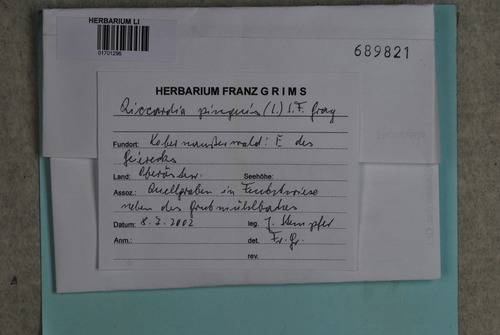 HERBARIUM LI
01701296
689821
HERBARIUM FRANZ GRIMS
Riccardia pinguis (L.) S.F. Gray
Fundort: Kobernaußerwald: E des
Land: Oberösterr. Seehöhe:
Assoz.: Quellgraben in Feuchtwiese
neben des
Datum: 8.7.2002 leg.
Anm.: det. Fr. Gr.
rev.